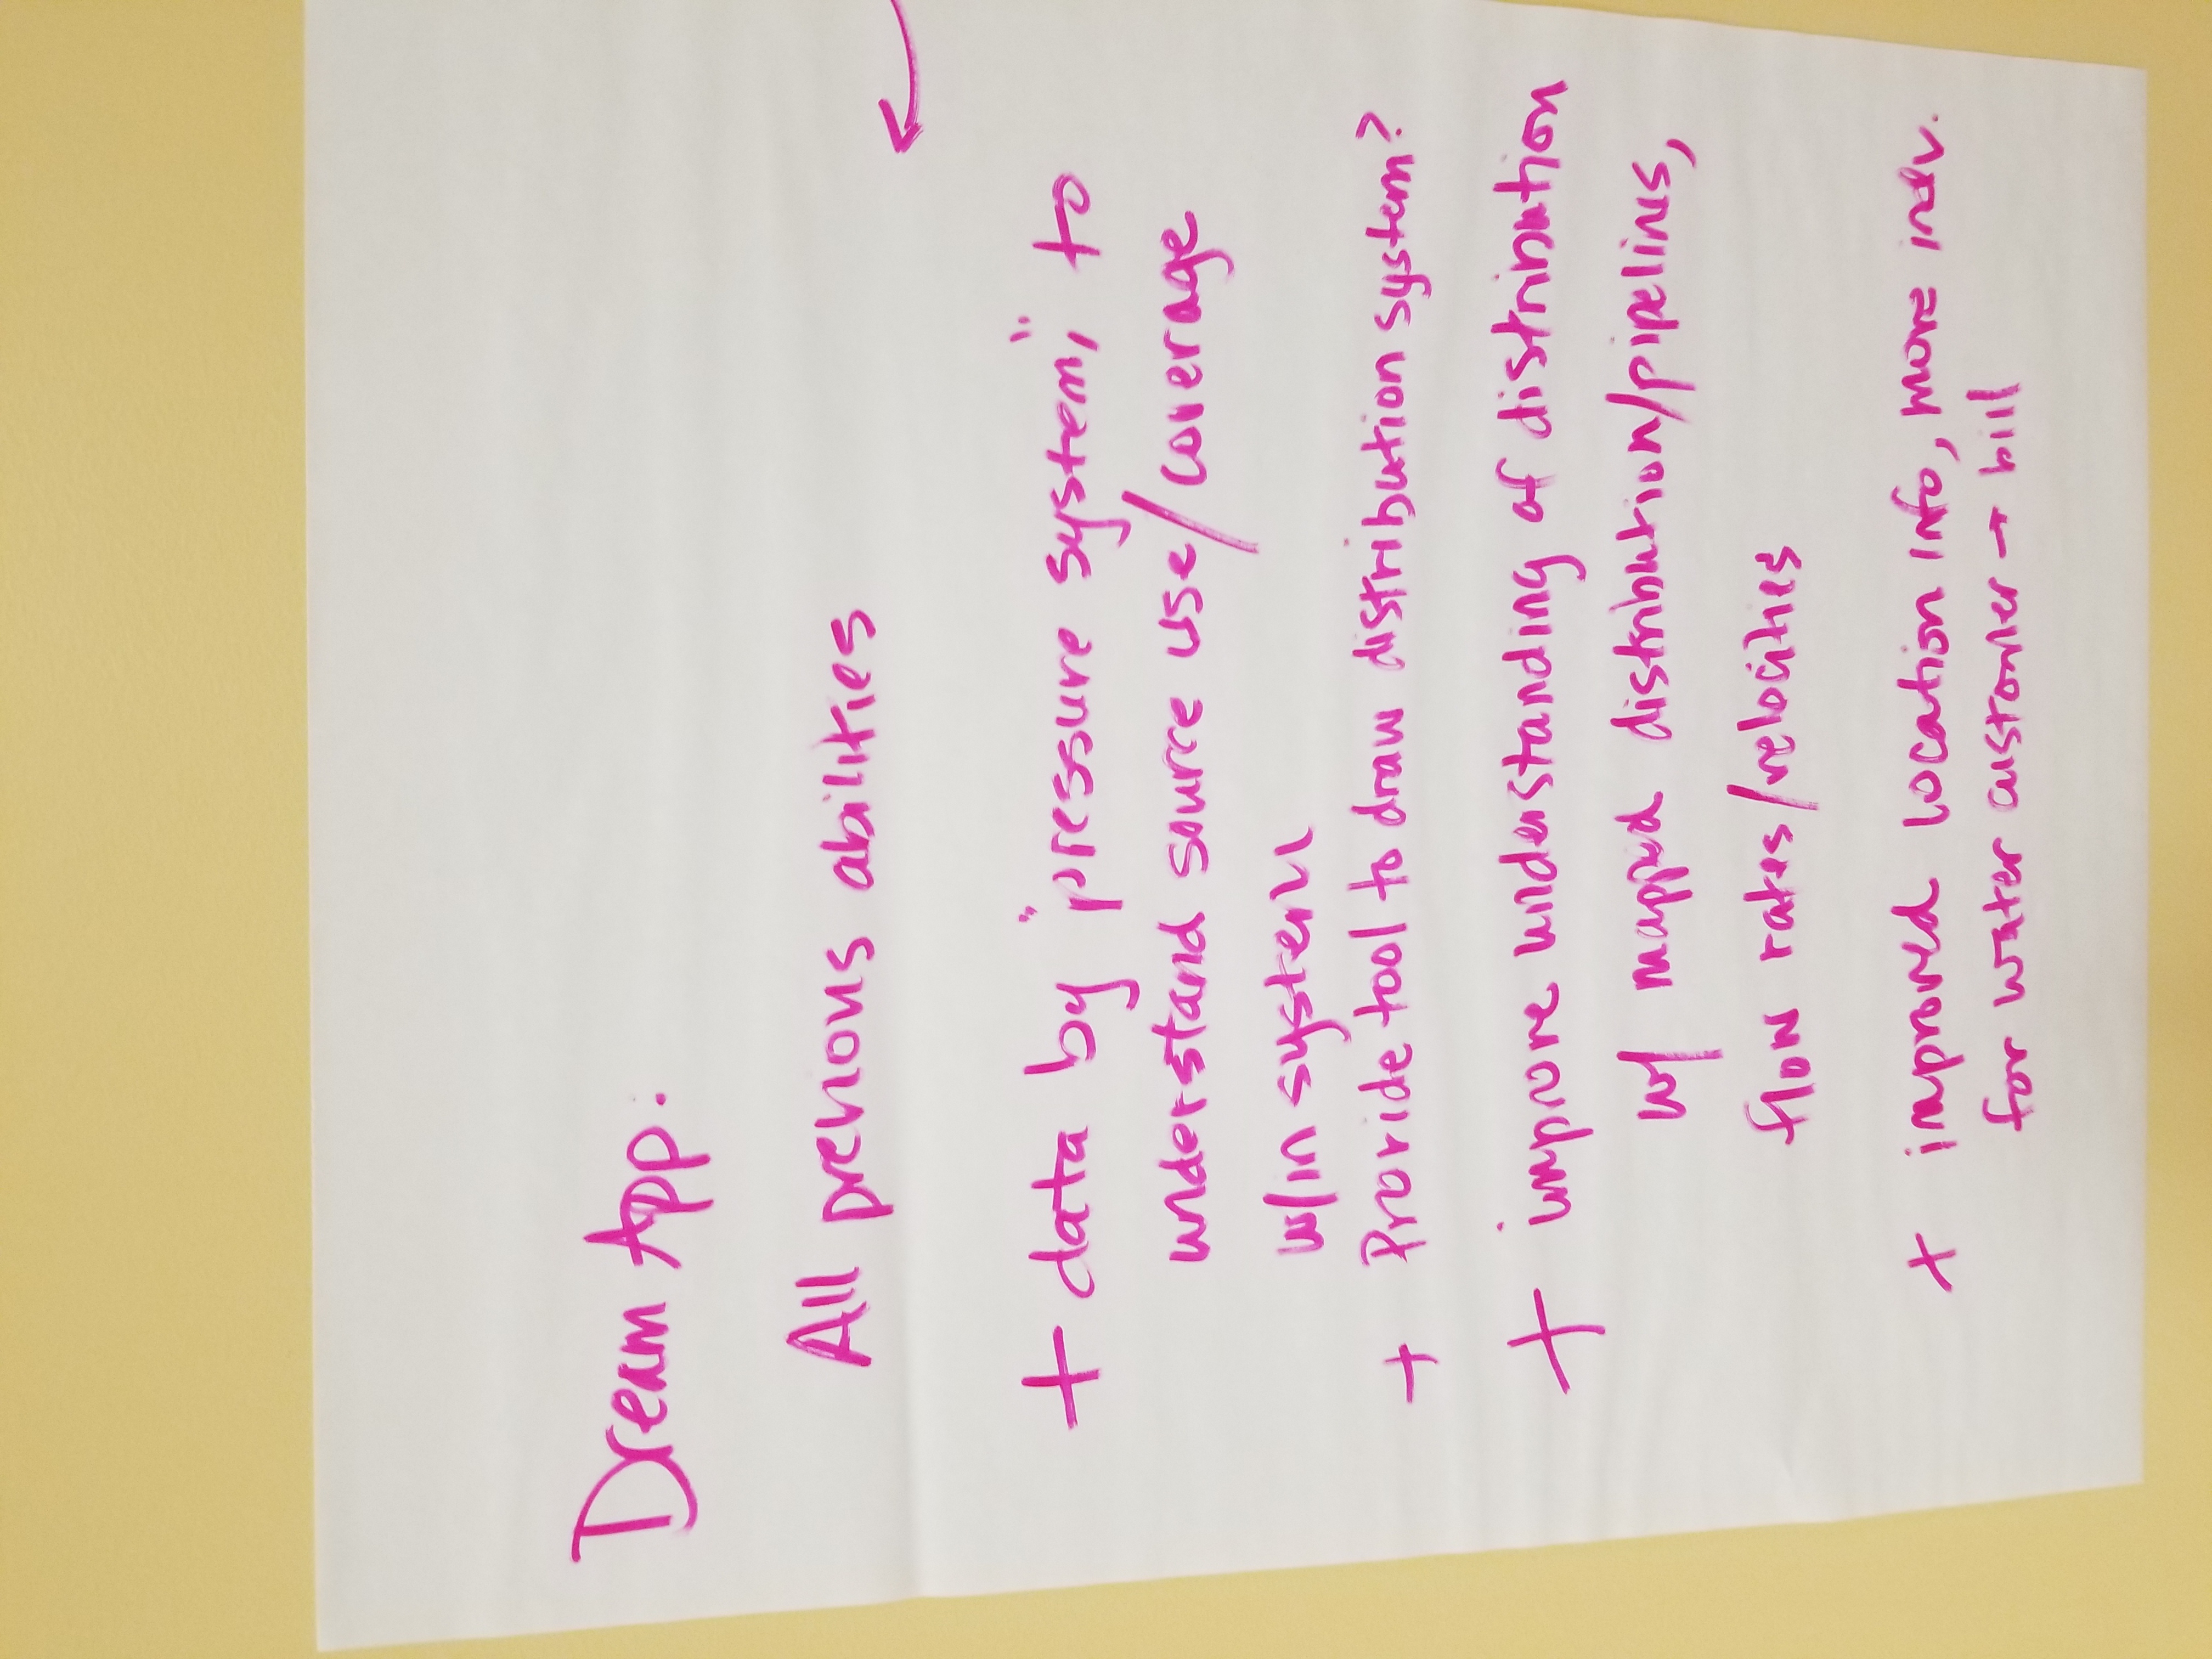 Dream App:
All previous abilities
←
+ data by "pressure system," to
understand source use/coverage
w/in system
+ Provide tool to draw distribution system?
+ improve understanding of distribution
w/ mapped distribution/pipelines,
flow rates/velocities
+ improved location info, more indv.
for water customer → bill